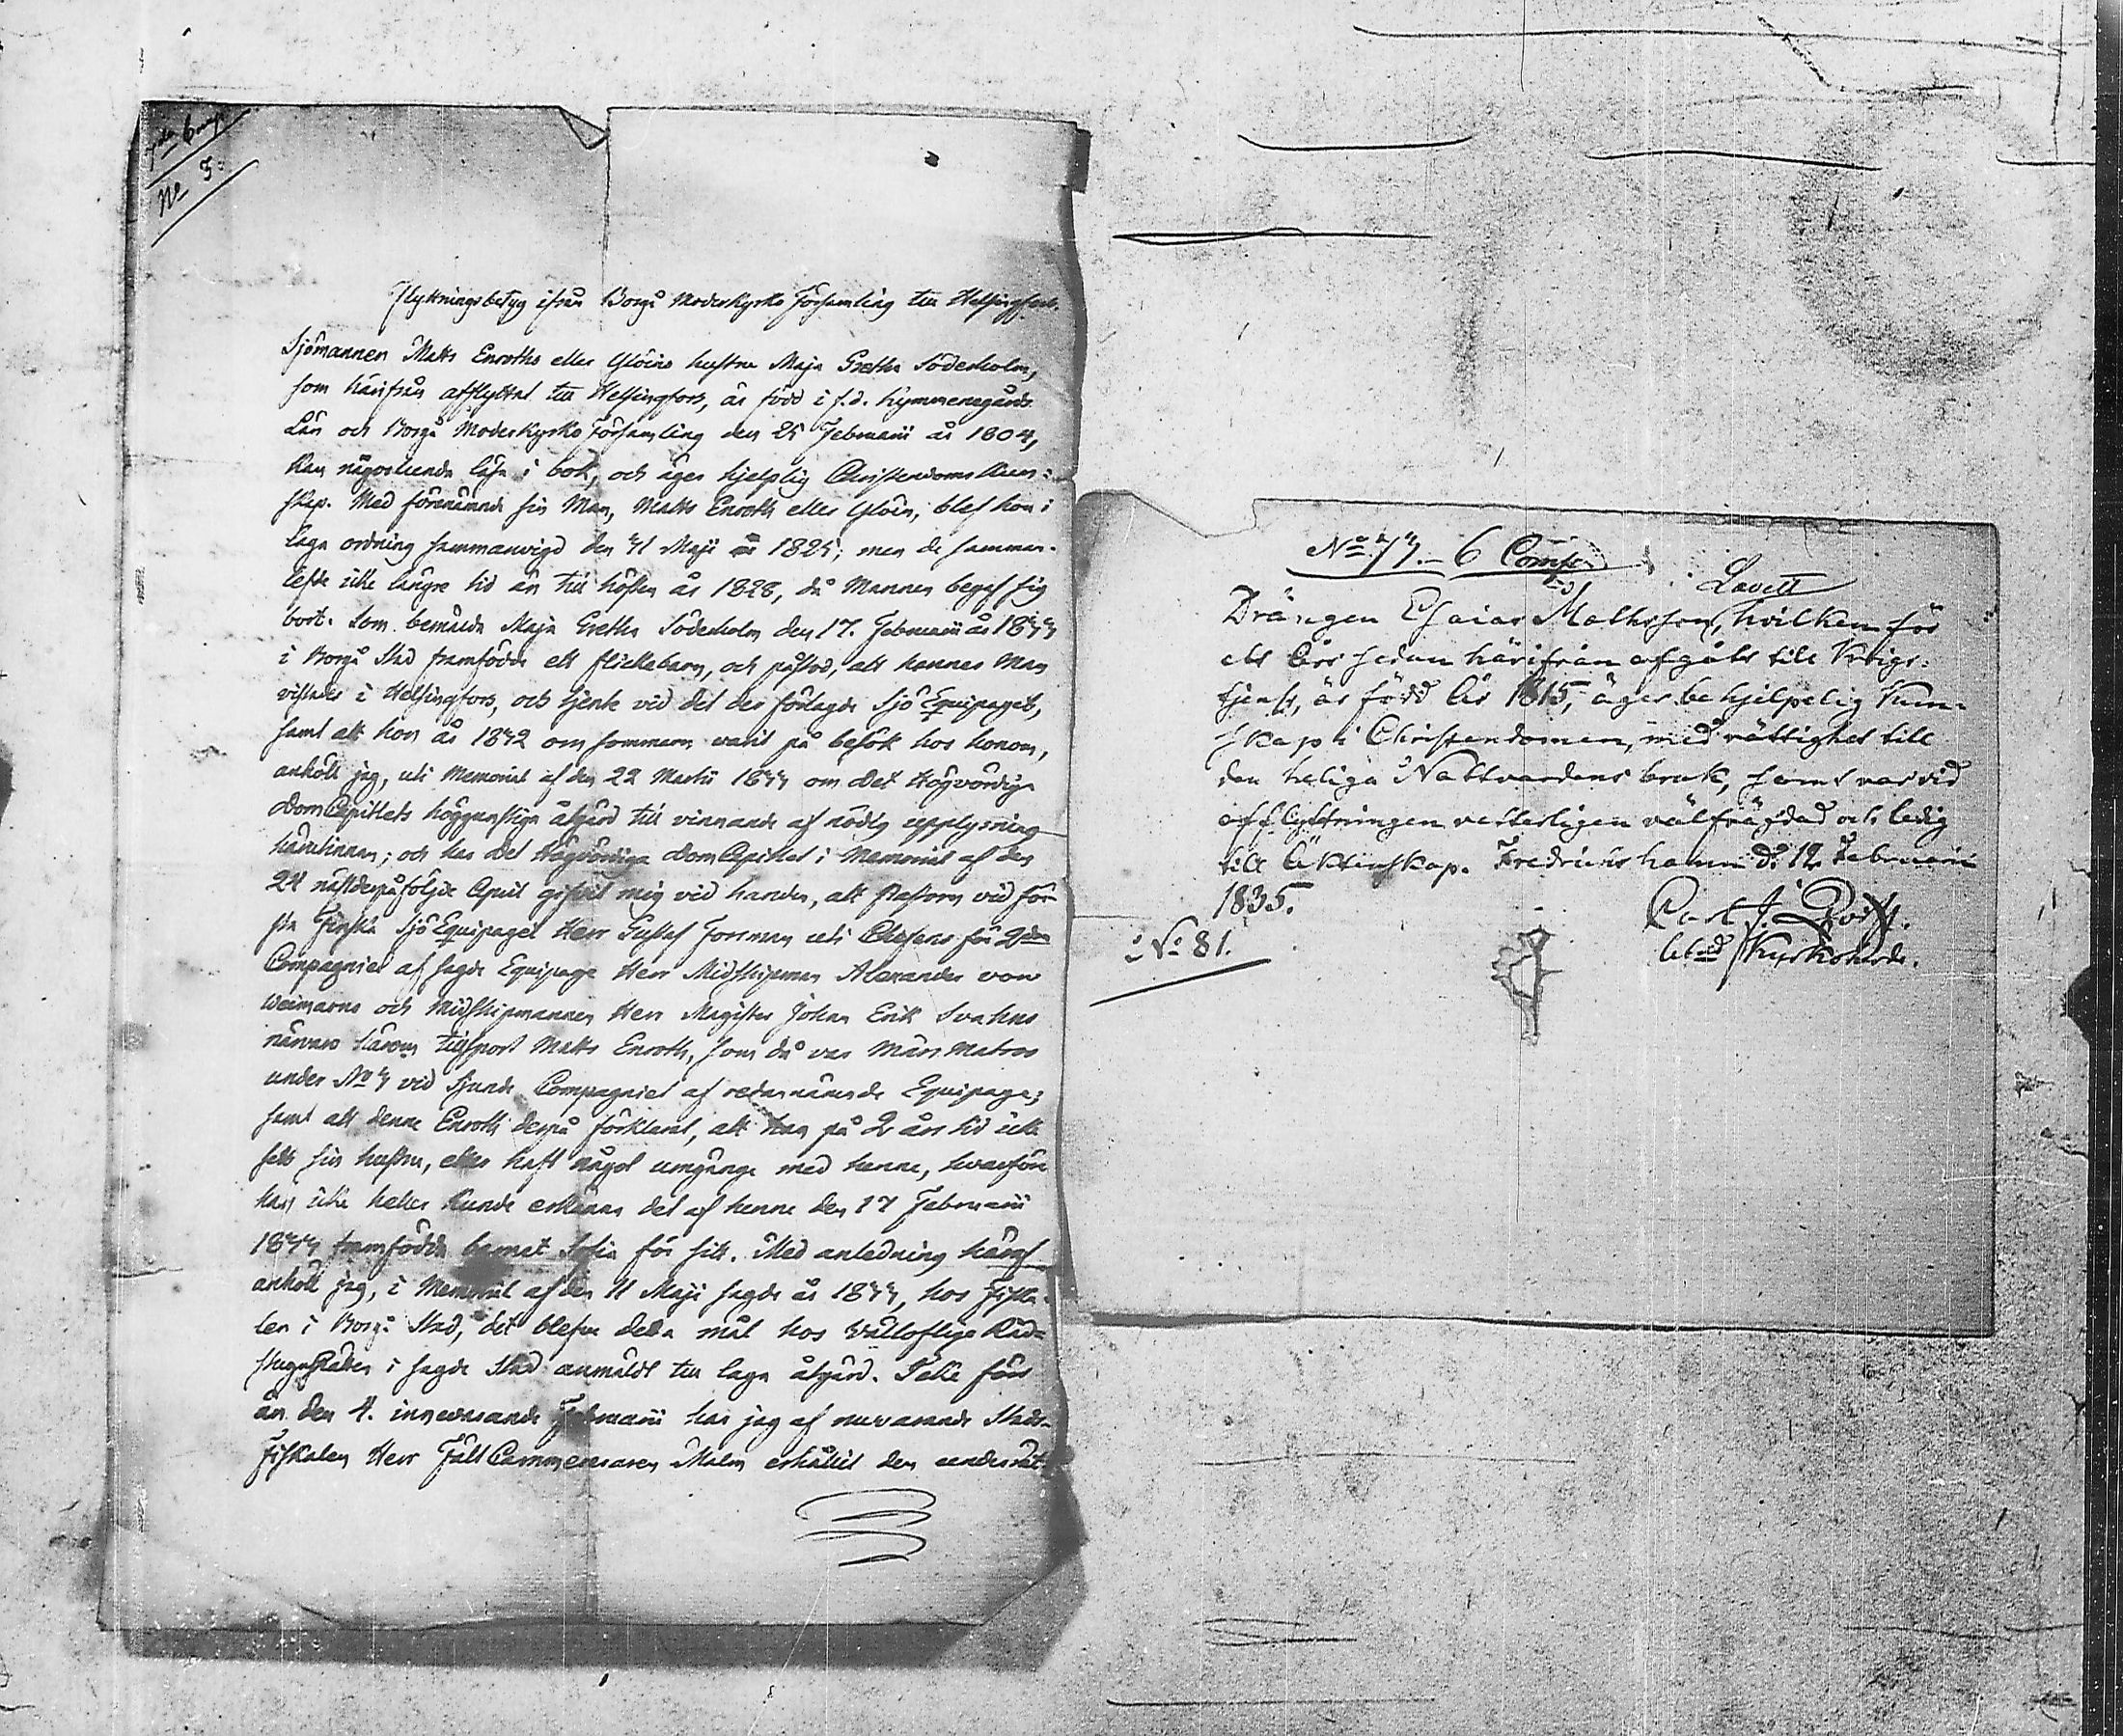 7de Comp
No 3:
Flyttningsbetyg ifrån Borgå Moderkyrko Församling till Helsingfors.
Sjömannen Matts Enroths eller Ylöins hustru Maja Gretha Söderholm,
som härifrån afflyttat till Helsingfors, är född i f.d. Kymmenegårds
Län och Borgå Moderkyrko Församling den 25 Februarii år 1804,
kan någorlunda läsa i bok, och äger hjelplig Christendoms Kun-
skap. Med förenämnde sin Man, Matts Enroth eller Ylöin, blef hon i
laga ordning sammanvigd den 31 Maji år 1825; men de samman-
lefde icke längre tid än till hösten år 1828, då Mannen begaf sig
bort. Som bemälde Maja Gretha Söderholm den 17. Februarii år 1833
i Borgå Stad framfödde ett flickebarn, och påstod, att hennes Man
vistades i Helsingfors, och tjente vid det der förlagde Sjö Equipaget,
samt att hon år 1832 om sommarn varit på besök hos honom,
anhöll jag, uti Memorial af den 22 Martii 1833 om det Högvördiga
DomCapitlets höggunstiga åtgärd till vinnande af nödig upplysning
härutinnan; och har det Högvördiga DomCapitlet i Memorial af den
24 nästderpåföljde April gifvit mig vid handen, att Pastorn vid för-
sta Finska Sjö Equipaget Herr Gustaf Forsman uti Chefens för 2dra
Compagniet af sagde Equipage Herr Midshipman Alexander von
Weimarns och Midshipmannen Herr Magister Johan Erik Svahns
närvaro härom tillsport Matts Enroth, som då var Märs Matros
under No 3 vid Sjunde Compagniet af redannämnde Equipage;
samt att denne Enroth derpå förklarat, att han på 2 års tid icke
sett sin hustru, eller haft något umgänge med henne, hvarföre
han icke heller kunde erkänna det af henne den 17 Februarii
1833 framfödda barnet Sofia för sitt. Med anledning häraf
anhöll jag, i Memorial af den 11 Maji sagde år 1833, hos Fiska-
len i Borgå Stad, det blefve detta mål hos Välloflige Råd-
stugu Rätten i sagde Stad anmäldt till laga åtgärd. Icke förr
än den 4. innevarande Februarii har jag af nuvarande Stads-
Fiskalen Herr Fält Cammereraren Malm erhållit den underrät-
No 73. - 6 Comp.
Lavett
Drängen Esaias Mathsson, hvilken för
ett års sedan härifrån afgått till Krigs-
tjenst, är född år 1815, äger behjelpelig kun-
skap i Christendomen, med rättighet till
den heliga Nattvardens bruk, samt var vid
afflyttningen vetterligen välfräjdad och ledig
till Äktenskap. Fredrikshamn d. 12 Februarii
1835.
No 81.